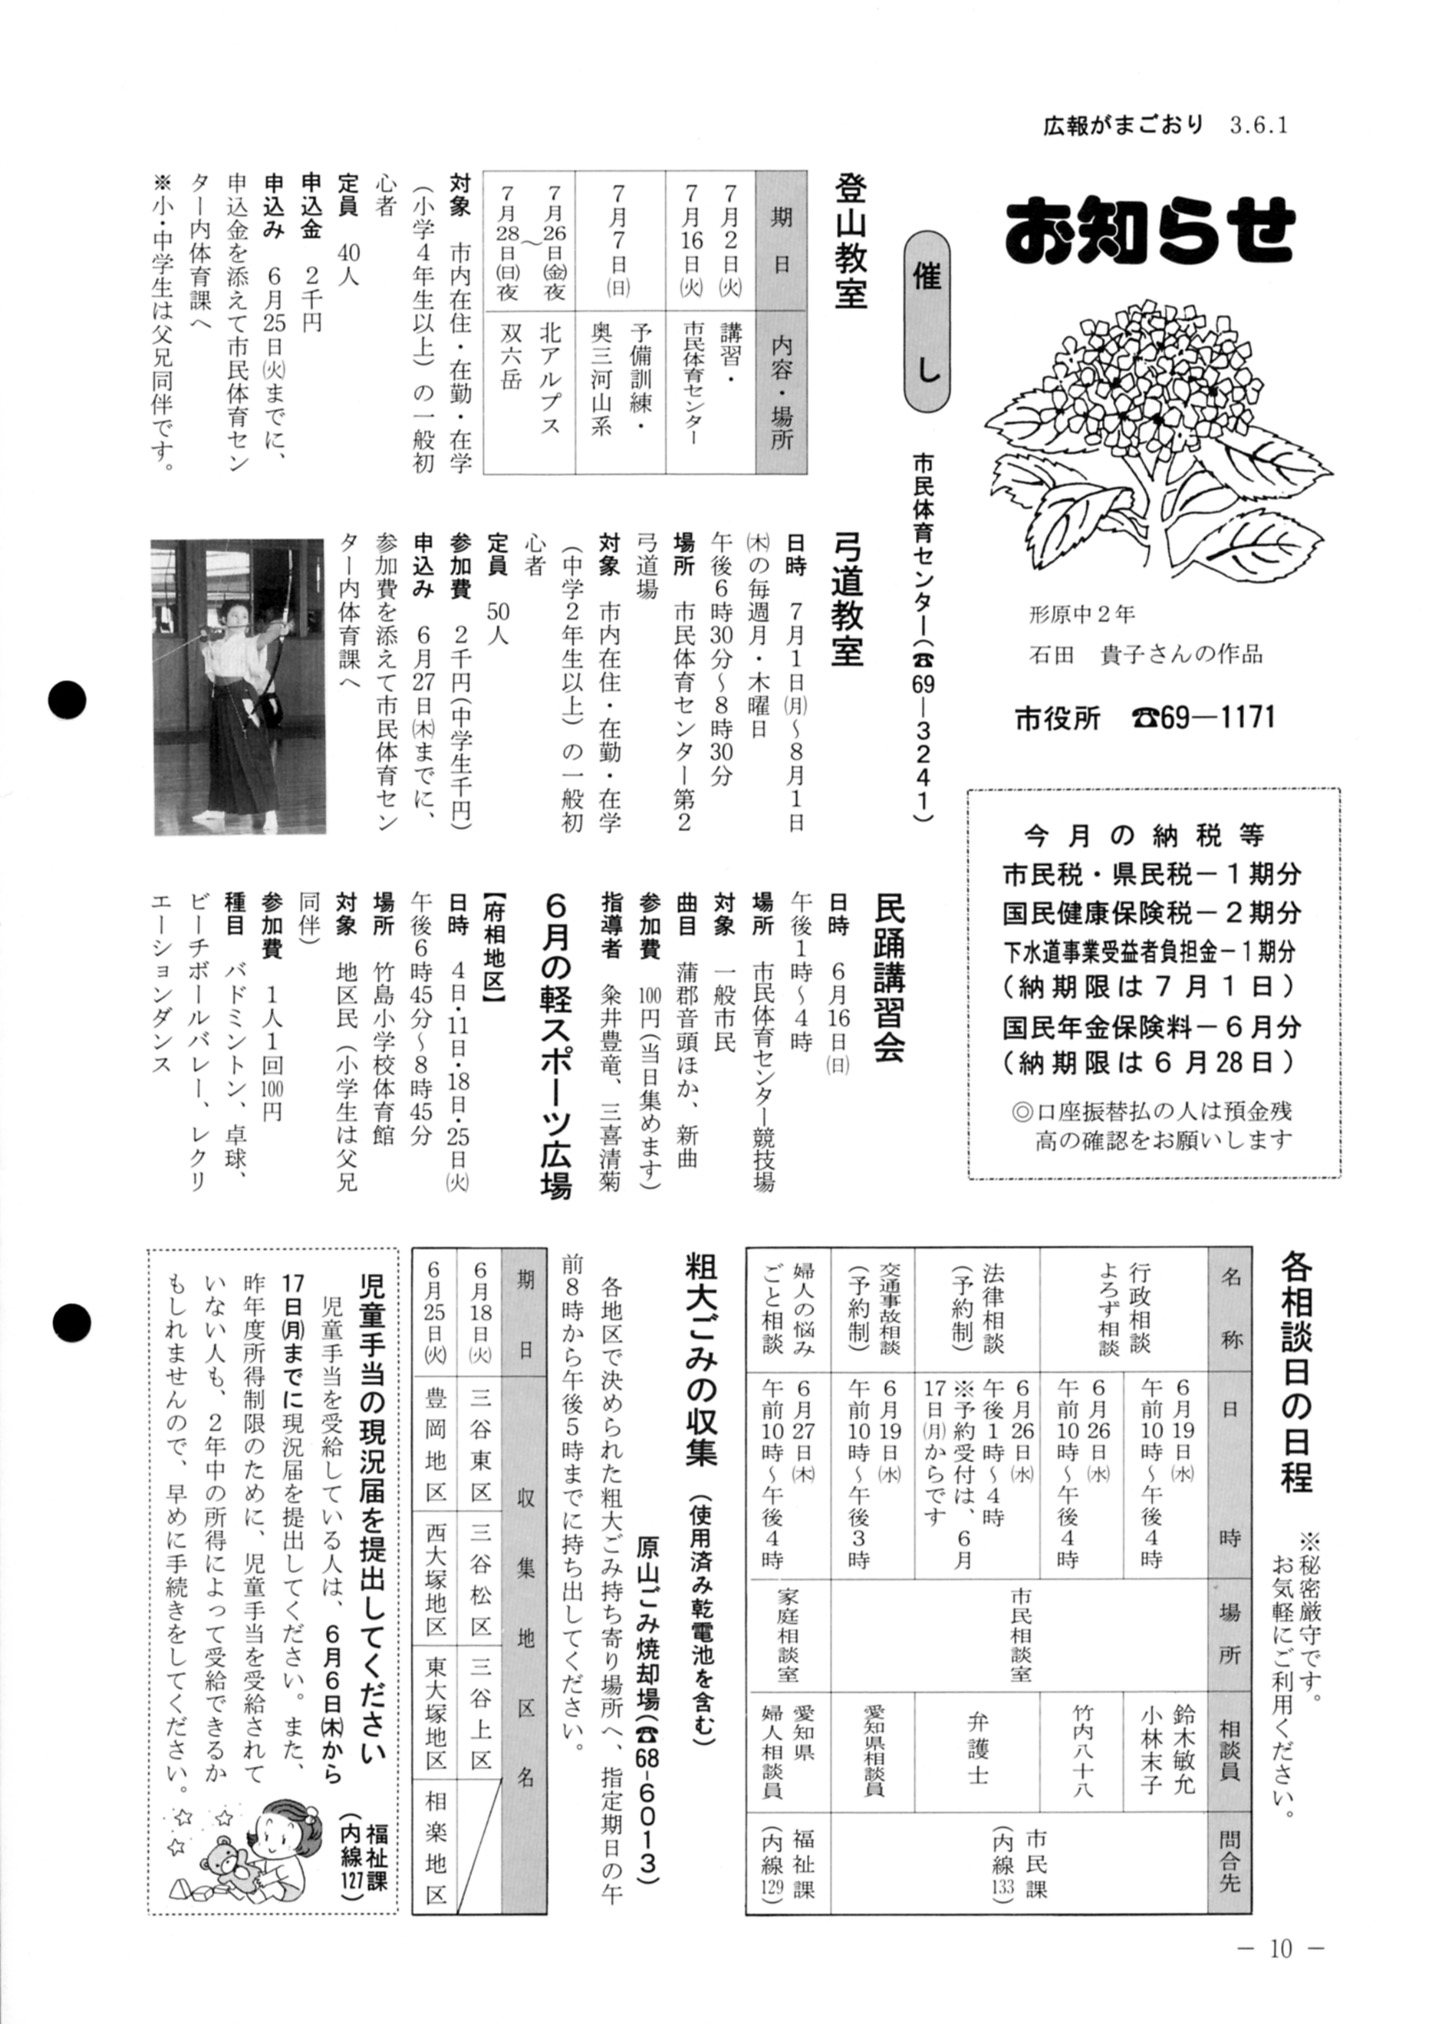 広報がまごおり 3.6.1
お知らせ
形原中2年
石田 貴子さんの作品
市役所 ☎69―1171
今月の納税等
市民税・県民税－1期分
国民健康保険税－2期分
下水道事業受益者負担金－1期分
(納期限は7月1日)
国民年金保険料－6月分
(納期限は6月28日)
◎口座振替払の人は預金残
高の確認をお願いします
催し
市民体育センター(☎69―3241)
登山教室
期日
内容・場所
7月2日㈫
7月16日㈫
講習・
市民体育センター
7月7日㈰
予備訓練・
奥三河山系
7月26日㈮夜
～
7月28日㈰夜
北アルプス
双六岳
対象 市内在住・在勤・在学
(小学4年生以上)の一般初
心者
定員 40人
申込金 2千円
申込み 6月25日㈫までに、
申込金を添えて市民体育セン
ター内体育課へ
※小・中学生は父兄同伴です。
弓道教室
日時 7月1日㈪～8月1日
㈭の毎週月・木曜日
午後6時30分～8時30分
場所 市民体育センター第2
弓道場
対象 市内在住・在勤・在学
(中学2年生以上)の一般初
心者
定員 50人
参加費 2千円(中学生千円)
申込み 6月27日㈭までに、
参加費を添えて市民体育セン
ター内体育課へ
民踊講習会
日時 6月16日㈰
午後1時～4時
場所 市民体育センター競技場
対象 一般市民
曲目 蒲郡音頭ほか、新曲
参加費 100円(当日集めます)
指導者 粂井豊竜、三喜清菊
6月の軽スポーツ広場
【府相地区】
日時 4日・11日・18日・25日㈫
午後6時45分～8時45分
場所 竹島小学校体育館
対象 地区民(小学生は父兄
同伴)
参加費 1人1回100円
種目 バドミントン、卓球、
ビーチボールバレー、レクリ
エーションダンス
各相談日の日程
※秘密厳守です。
お気軽にご利用ください。
名称
日時
場所
相談員
問合先
行政相談
よろず相談
6月19日㈬
午前10時～午後4時
鈴木敏允
小林末子
6月26日㈬
午前10時～午後4時
竹内八十八
法律相談
(予約制)
6月26日㈬
午後1時～4時
※予約受付は、6月
17日㈪からです
弁護士
交通事故相談
(予約制)
6月19日㈬
午前10時～午後3時
愛知県相談員
市民相談室
市民課
(内線133)
婦人の悩み
ごと相談
6月27日㈭
午前10時～午後4時
家庭相談室
愛知県
婦人相談員
福祉課
(内線129)
粗大ごみの収集 (使用済み乾電池を含む)
原山ごみ焼却場(☎68-6013)
各地区で決められた粗大ごみ持ち寄り場所へ、指定期日の午
前8時から午後5時までに持ち出してください。
期日
収集地区名
6月18日㈫
三谷東区
三谷松区
三谷上区
6月25日㈫
豊岡地区
西大塚地区
東大塚地区
相楽地区
児童手当の現況届を提出してください
福祉課
(内線127)
児童手当を受給している人は、6月6日㈭から
17日㈪までに現況届を提出してください。また、
昨年度所得制限のために、児童手当を受給されて
いない人も、2年中の所得によって受給できるか
もしれませんので、早めに手続きをしてください。
－ 10 －